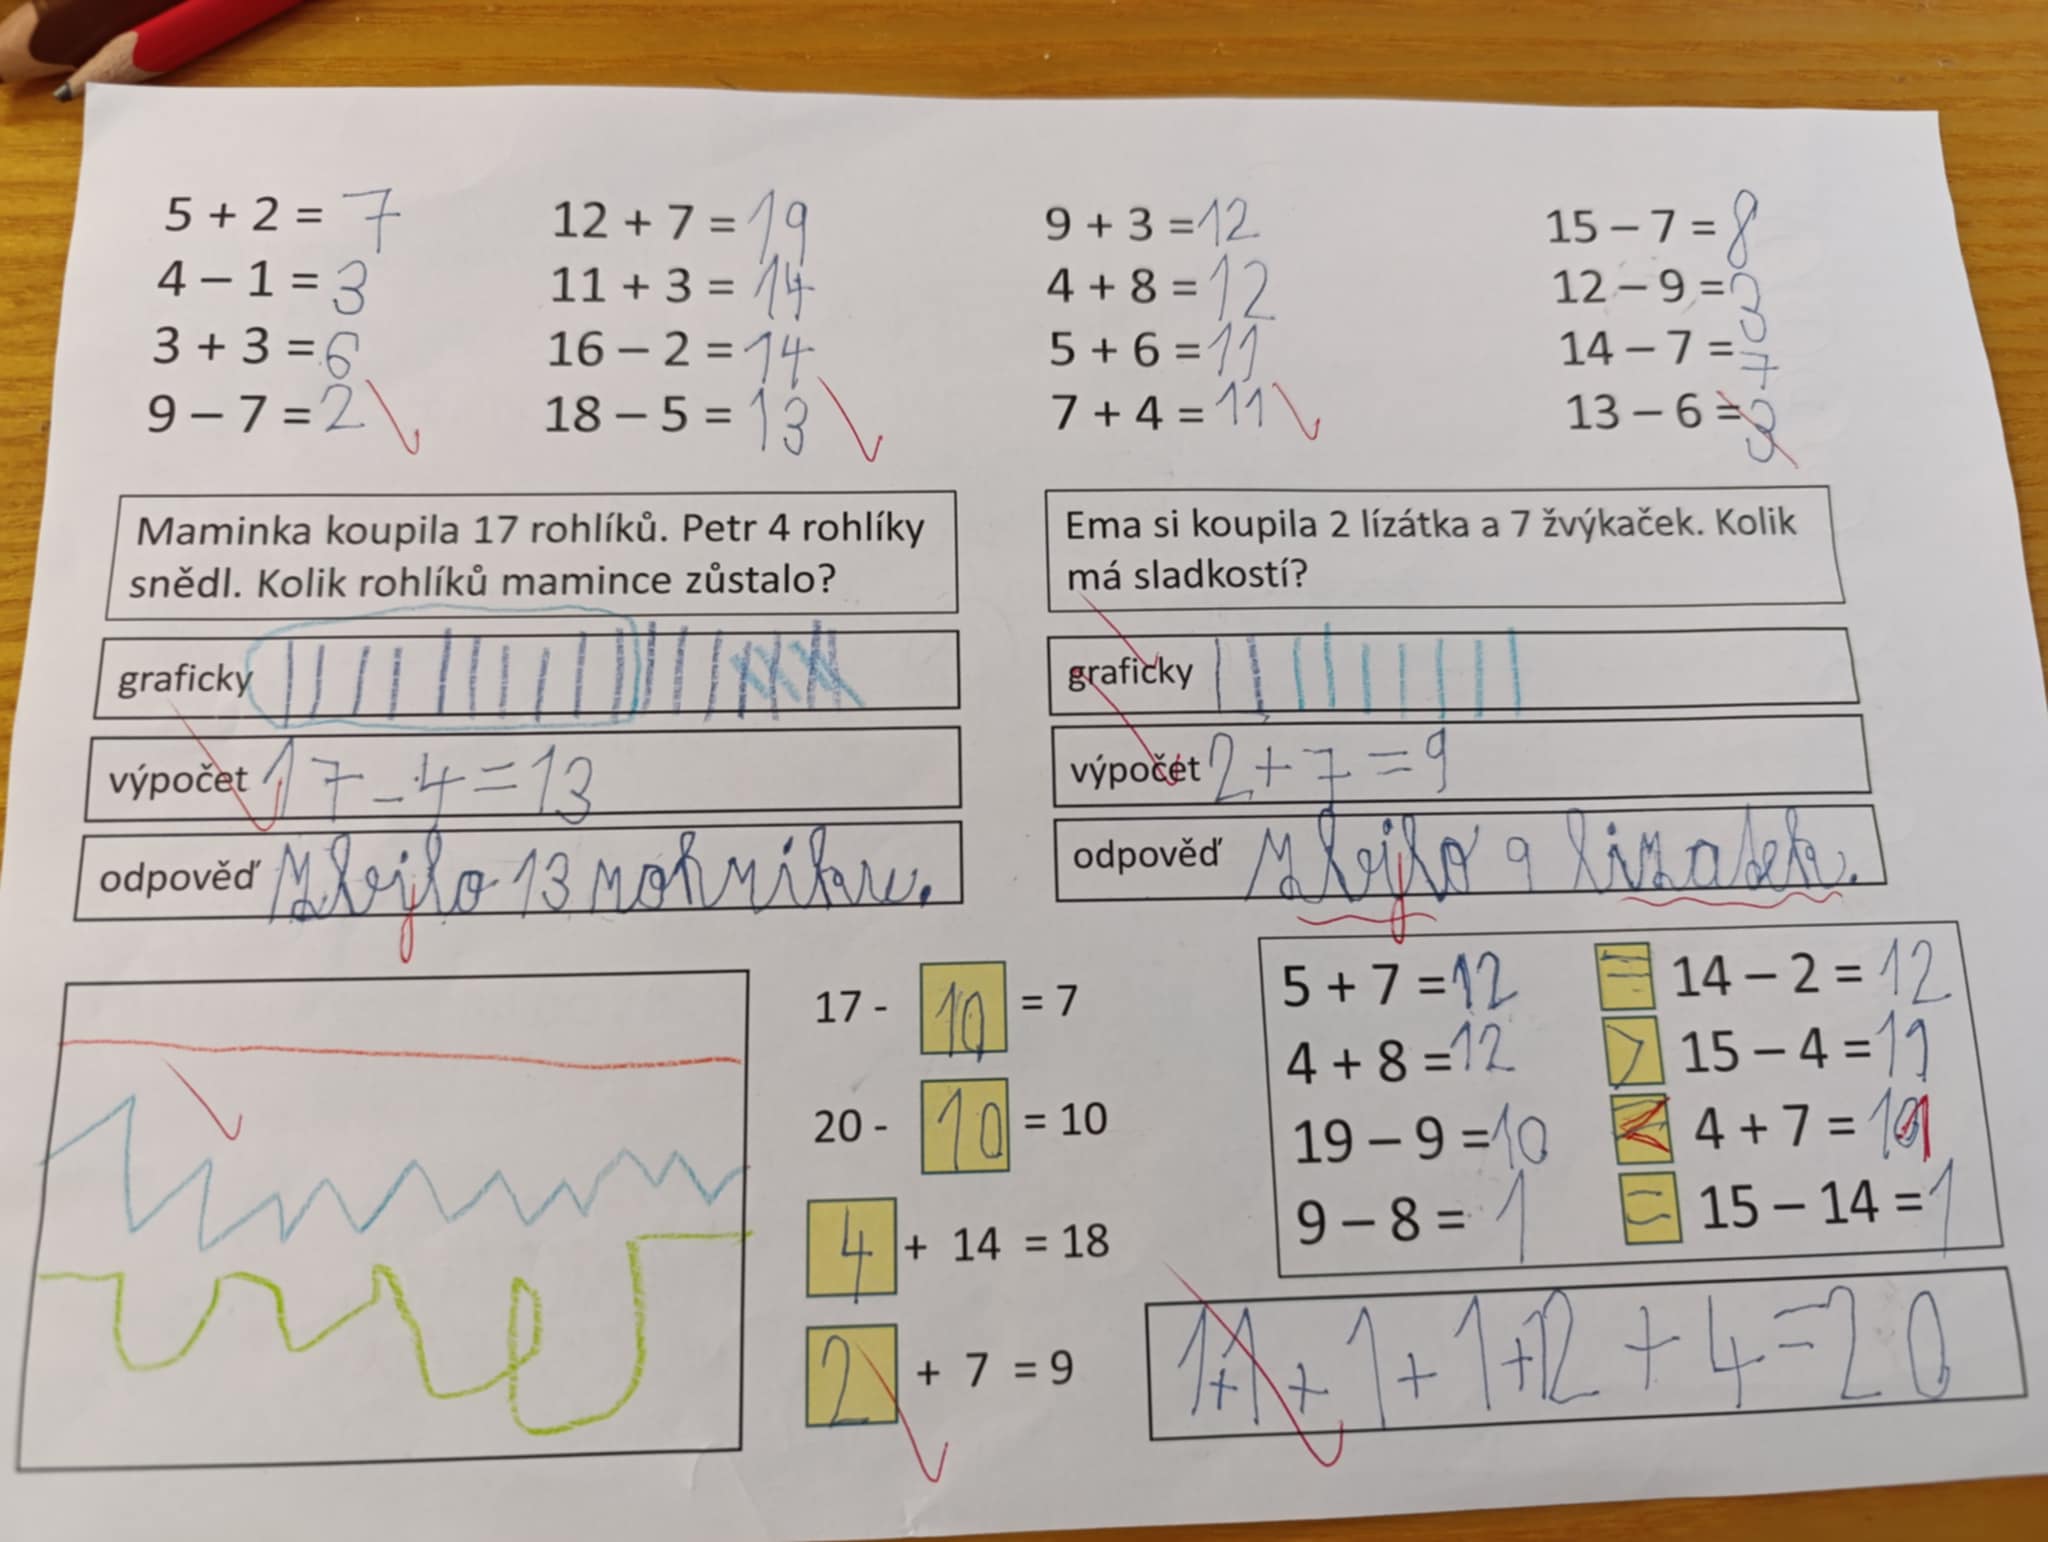 5 + 2 = 7
4 – 1 = 3
3 + 3 = 6
9 – 7 = 2
12 + 7 = 19
11 + 3 = 14
16 – 2 = 14
18 – 5 = 13
9 + 3 = 12
4 + 8 = 12
5 + 6 = 11
7 + 4 = 11
15 – 7 = 8
12 – 9 = 3
14 – 7 = 7
13 – 6 = 3
Maminka koupila 17 rohlíků. Petr 4 rohlíky
snědl. Kolik rohlíků mamince zůstalo?
graficky
výpočet 17 - 4 = 13
odpověď 13
Ema si koupila 2 lízátka a 7 žvýkaček. Kolik
má sladkostí?
graficky
výpočet 2 + 7 = 9
odpověď 9 lizatek.
17 - 10 = 7
20 - 10 = 10
4 + 14 = 18
2 + 7 = 9
5 + 7 = 12 = 14 – 2 = 12
4 + 8 = 12 > 15 – 4 = 11
19 – 9 = 10 < 4 + 7 = 11
9 – 8 = 1 = 15 – 14 = 1
1+1+1+1+12+4=20